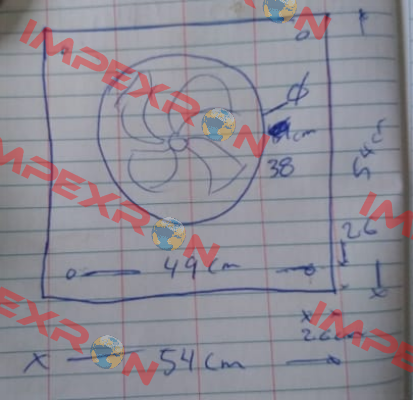 IMPEXRON
φ
cm
38
54 c
IMPEXRON
26
49 cm
x
26 cm
x 54 cm
IMPEXRON